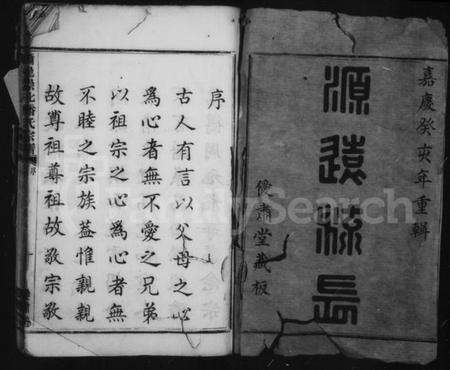 嘉慶癸亥年重輯
源遠流長
堂藏板
序
古人有言以父母之心
為心者無不愛之兄弟
以祖宗之心為心者無
不睦之宗族蓋惟親親
故尊祖尊祖故敬宗敬
FamilySearch